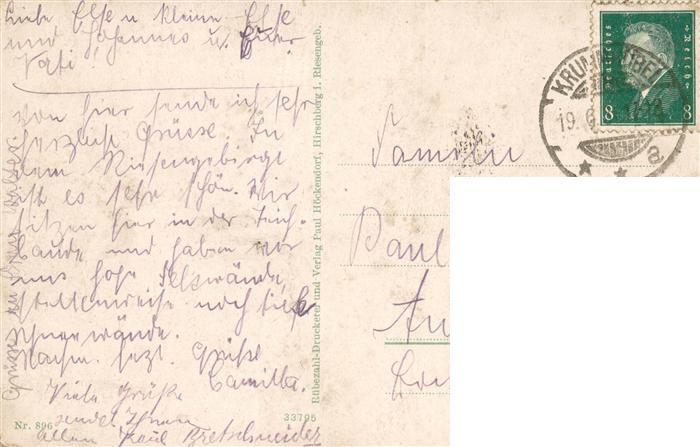 Liebe Else u. kleine Else
und Johannes u. Euer
Vati!
von hier sende ich sehr
herzlich Grüsse. In
dem Riesengebirge
ist es sehr schön. Wir
sitzen hier in der Teich-
baude und haben vor
uns hohe Felswände,
stellenweise noch tiefe
Schneewände.
Nachm. Grüße
Camilla.
Viele Grüße
sendet Ihnen
allen Paul Bretschneider
Nr. 896
33705
Rübezahl-Druckerei und Verlag Paul Höckendorf, Hirschberg i. Riesengeb.
Familie
Paul
Deutsches Reich
8 8
KRUMMHÜBEL
19.6
a